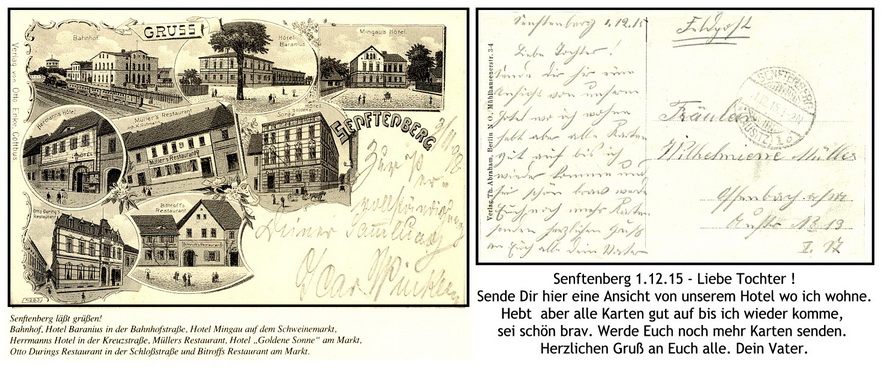 GRUSS
Bahnhof
Hôtel Baranius
Mingaus Hôtel
Herrmanns Hôtel
Müller's Restaurant
Müller's Restaurant
SENFTENBERG
Otto Düring's Restaurant
Bitroff's Restaurant
Zur Ver-
vollständigung
Deiner Sammlung
Senftenberg läßt grüßen!
Bahnhof, Hotel Baranius in der Bahnhofstraße, Hotel Mingau auf dem Schweinemarkt,
Herrmanns Hotel in der Kreuzstraße, Müllers Restaurant, Hotel „Goldene Sonne“ am Markt,
Otto Durings Restaurant in der Schloßstraße und Bitroffs Restaurant am Markt.
Verlag Th. Abraham, Berlin N O, Mühlhausenerstr. 3-4
Senftenberg 1.12.15
Liebe Tochter!
Sende Dir hier eine
Ansicht von unserem
Hotel wo ich wohne
Hebt aber alle Karten
gut auf bis ich
wieder komme, und
sei schön brav. Werde
Euch noch mehr Karten
senden. Herzlichen Gruß
an Euch alle Dein Vater
Feldpost
SENFTENBERG
Fräulein
Wilhelmine Müller
Offenbach a/M
Senftenberg 1.12.15 - Liebe Tochter !
Sende Dir hier eine Ansicht von unserem Hotel wo ich wohne.
Hebt aber alle Karten gut auf bis ich wieder komme,
sei schön brav. Werde Euch noch mehr Karten senden.
Herzlichen Gruß an Euch alle. Dein Vater.